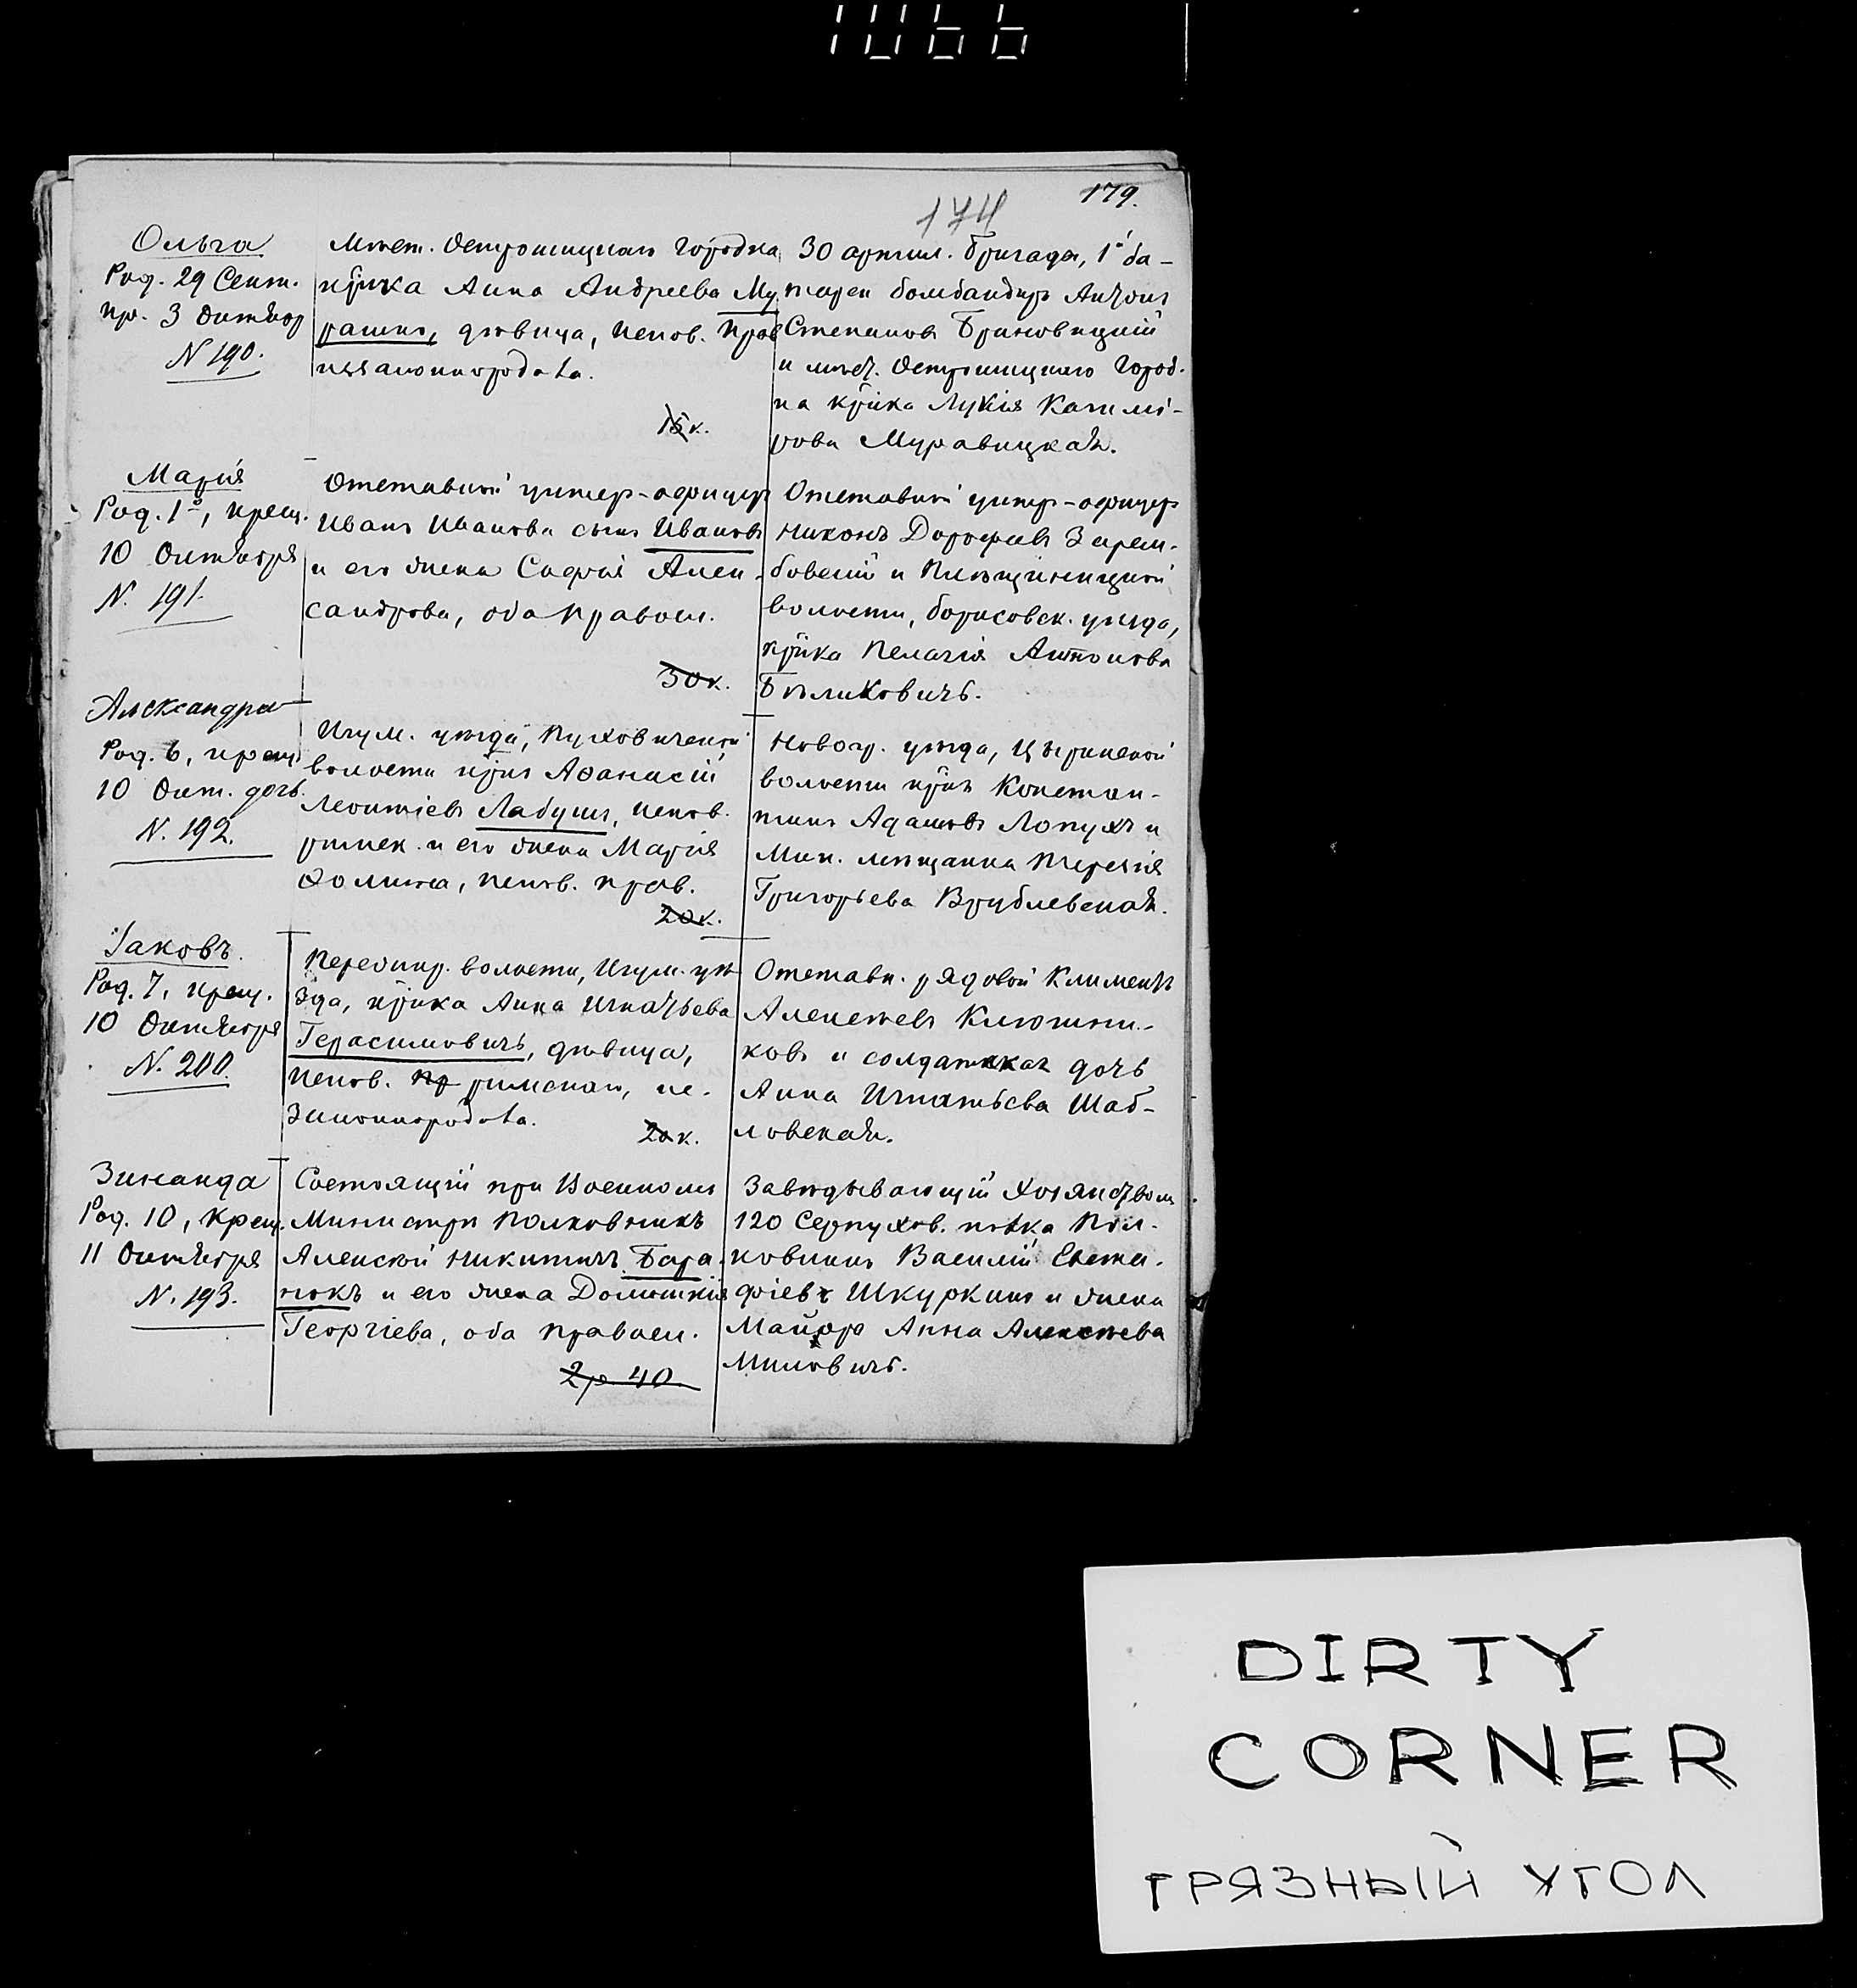 1066
179.
174
Ольга
Род. 29 Сент.
кр. 3 Октябр
N 190.
Мѣст. Острошицкаго Городка
кр̃нка Анна Андреева Му
рашко, дѣвица, испов. прав
незаконнород-ла.
15 к.
30 артил. бригады, 1й ба-
тареи бомбандиръ Антонъ
Степановъ Бриновицкій
и мѣст. Острошицкаго Город-
ка кр̃нка Лукія Казимі-
рова Муравицкая.
Марія
Род. 1го, крещ.
10 Октября
N. 191.
Отставной унтер-офицеръ
Иванъ Иванова сынъ Ивановъ
и его жена Софія Алек-
сандрова, оба правосл.
30 к.
Отставной унтер-офицеръ
Никонъ Дорофеевъ Зарем-
бовскій и Плещиницкой
волости, борисовск. уѣзда,
кр̃нка Пелагія Антонова
Бѣликовичъ.
Александра
Род. 6, крещ.
10 Окт. дочь.
N. 192.
Игум. уѣзда, Пуховичской
волости кр̃нъ Аѳанасій
Леонтіевъ Лабушъ, испов.
римск. и его жена Марія
Ѳомина, испов. прав.
20 к.
Новогр. уѣзда, Цыринской
волости кр̃нъ Констан-
тинъ Адамовъ Лопухъ и
Мин. мѣщанка Терезія
Григорьева Врублевская.
Іаковъ.
Род. 7, крещ.
10 Октября
N. 200.
Переспир. волости, Игум. уѣ-
зда, кр̃нка Анна Игнатьева
Герасимовичъ, дѣвица,
испов. пр римскаго, не-
законнород-ла.
20 к.
Отставн. рядовой Климентъ
Алексѣевъ Клютни-
ковъ и солдатская дочь
Анна Игнатьева Шаб-
ловская.
Зинаида
Род. 10, крещ.
11 Октября
N. 193.
Состоящій при Военномъ
Министрѣ Полковникъ
Алексѣй Никитичъ Бара-
нокъ и его жена Домникія
Георгіева, оба правосл.
2 р. 40
Завѣдывающій хозяйствомъ
120 Серпухов. полка Пол-
ковникъ Василій Евста-
фіевъ Шкуркинъ и жена
Майора Анна Алексѣева
Миловичъ.
DIRTY
CORNER
ГРЯЗНЫЙ УГОЛ